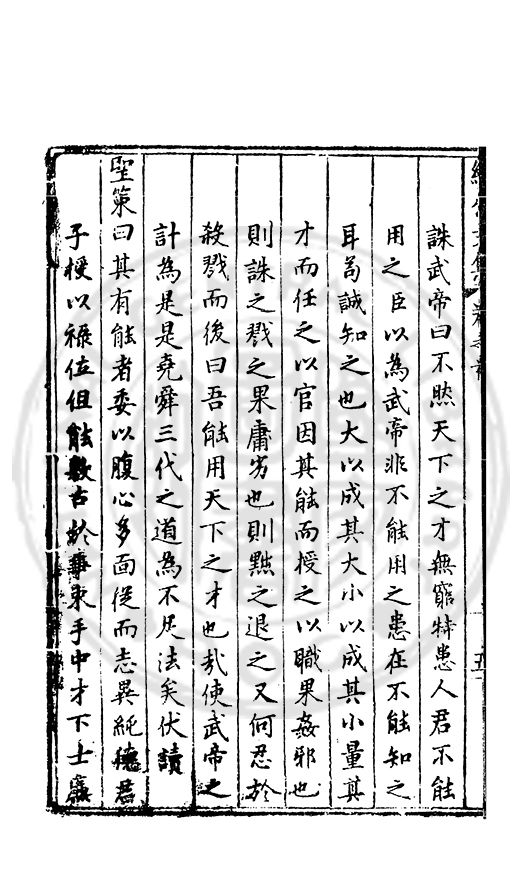 誅武帝曰不然天下之才無窮特患人君不能
用之臣以為武帝非不能用之患在不能知之
耳苟誠知之也大以成其大小以成其小量其
才而任之以官因其能而授之以職果姦邪也
則誅之戮之果庸劣也則黜之退之又何忍於
殺戮而後曰吾能用天下之才也哉使武帝之
計為是是堯舜三代之道為不足法矣伏讀
聖策曰其有能者委以腹心多面從而志異純德君
子授以祿位但能數古於事束手中才下士